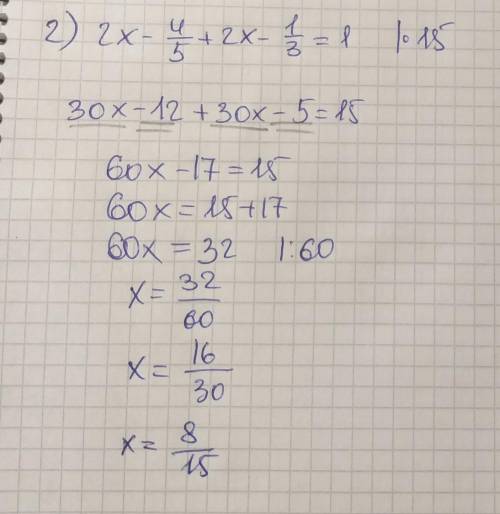 2) 2x - 4/5 + 2x - 1/3 = 1 |·15
30x - 12 + 30x - 5 = 15
60x - 17 = 15
60x = 15 + 17
60x = 32 |:60
x = 32/60
x = 16/30
x = 8/15